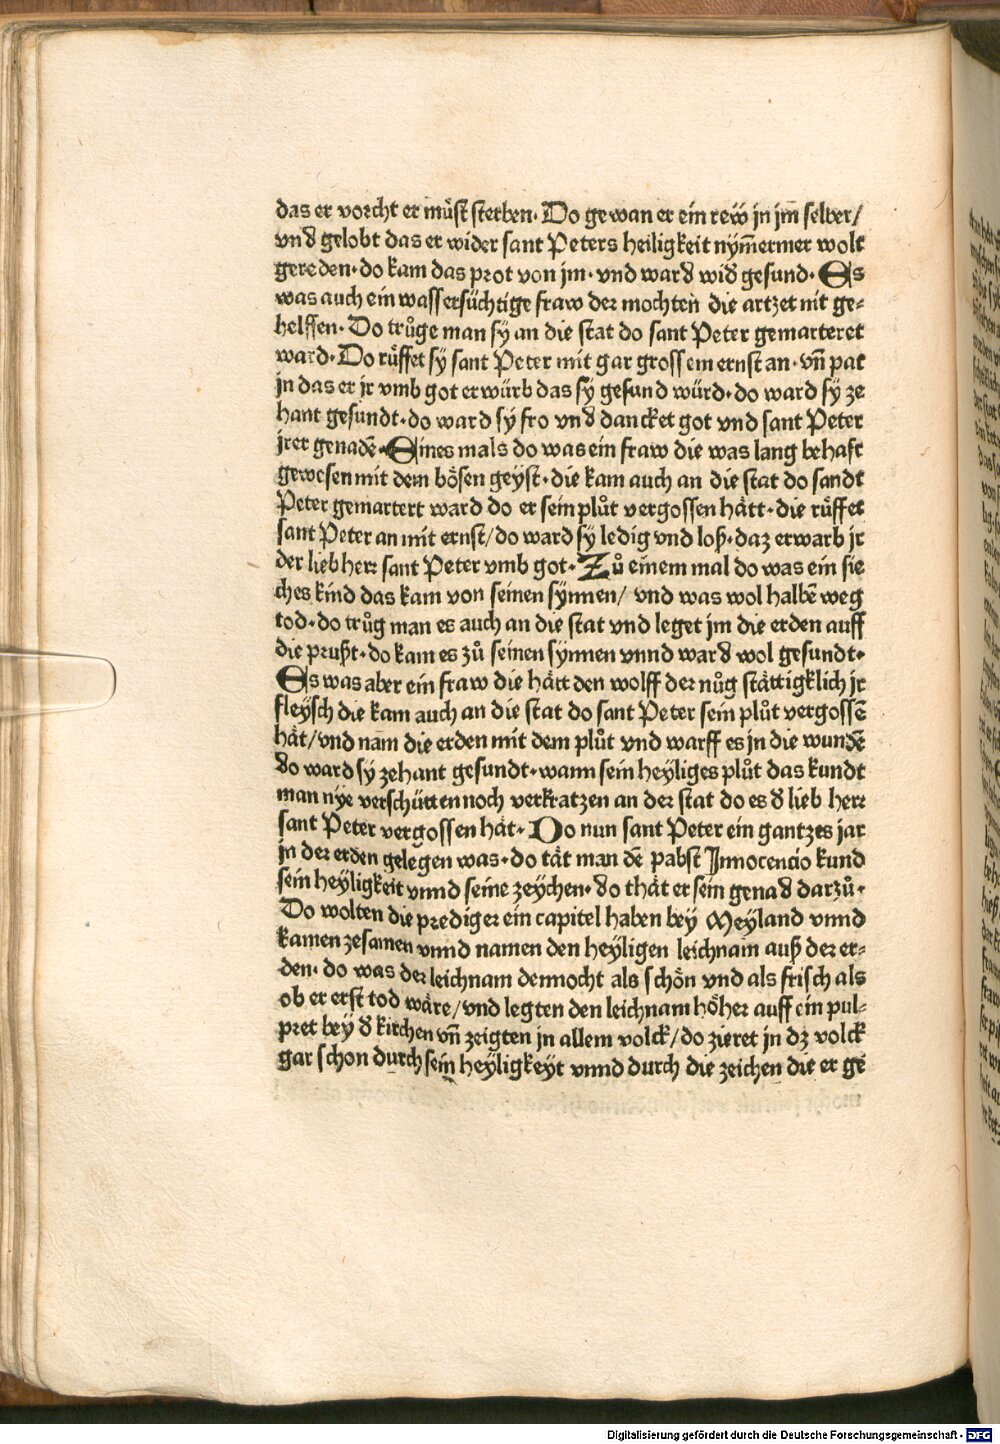 das er vorcht er můst sterben. Do gewan er ein reẅ in jm̃ selber/
vnd gelobt das er wider sant Peters heiligkeit nym̃ermer wolt
gereden. do kam das prot von jm. vnd ward wid̕ gesund. Es
was auch ein wassersüchtige fraw der mochten die artzet nit ge-
helffen. Do trůge man sy an die stat do sant Peter gemarteret
ward. Do růffet sy sant Peter mit gar grossem ernst an. vñ pat
jn das er jr vmb got erwürb das sy gesund würd. do ward sy ze
hant gesundt. do ward sy fro vnd dancket got vnd sant Peter
jrer genadẽ. Eines mals do was ein fraw die was lang behaft
gewesen mit dem bösen geyst. die kam auch an die stat do sandt
Peter gemartert ward do er sein plůt vergossen hätt. die růffet
sant Peter an mit ernst/ do ward sy ledig vnd loß. daz erwarb jr
der lieb herr sant Peter vmb got. Zů einem mal do was ein sie
ches kind das kam von seinen synnen/ vnd was wol halbẽ weg
tod. do trůg man es auch an die stat vnd leget jm die erden auff
die prußt. do kam es zů seinen synnen vnnd ward wol gesundt.
Es was aber ein fraw die hätt den wolff der nůg stättigklich jr
fleysch die kam auch an die stat do sant Peter sein plůt vergossẽ
hät/ vnd nam die erden mit dem plůt vnd warff es jn die wundẽ
do ward sy zehant gesundt. wann sein heyliges plůt das kundt
man nye verschütten noch verkratzen an der stat do es d̕ lieb herr
sant Peter vergossen hät. Do nun sant Peter ein gantzes jar
jn der erden gelegen was. do tät man dẽ pabst Innocencio kund
sein heyligkeit vnnd seine zeychen. do thät er sein genad darzů.
Do wolten die prediger ein capitel haben bey Meyland vnnd
kamen zesamen vnnd namen den heyligen leichnam auß der er-
den. do was der leichnam dennocht als schön vnd als frisch als
ob er erst tod wäre/ vnd legten den leichnam höher auff ein pul-
pret bey d̕ kirchen vñ zeigten jn allem volck/ do zieret jn dz volck
gar schon durch sein heyligkeyt vnnd durch die zeichen die er ge
Digitalisierung gefördert durch die Deutsche Forschungsgemeinschaft - DFG